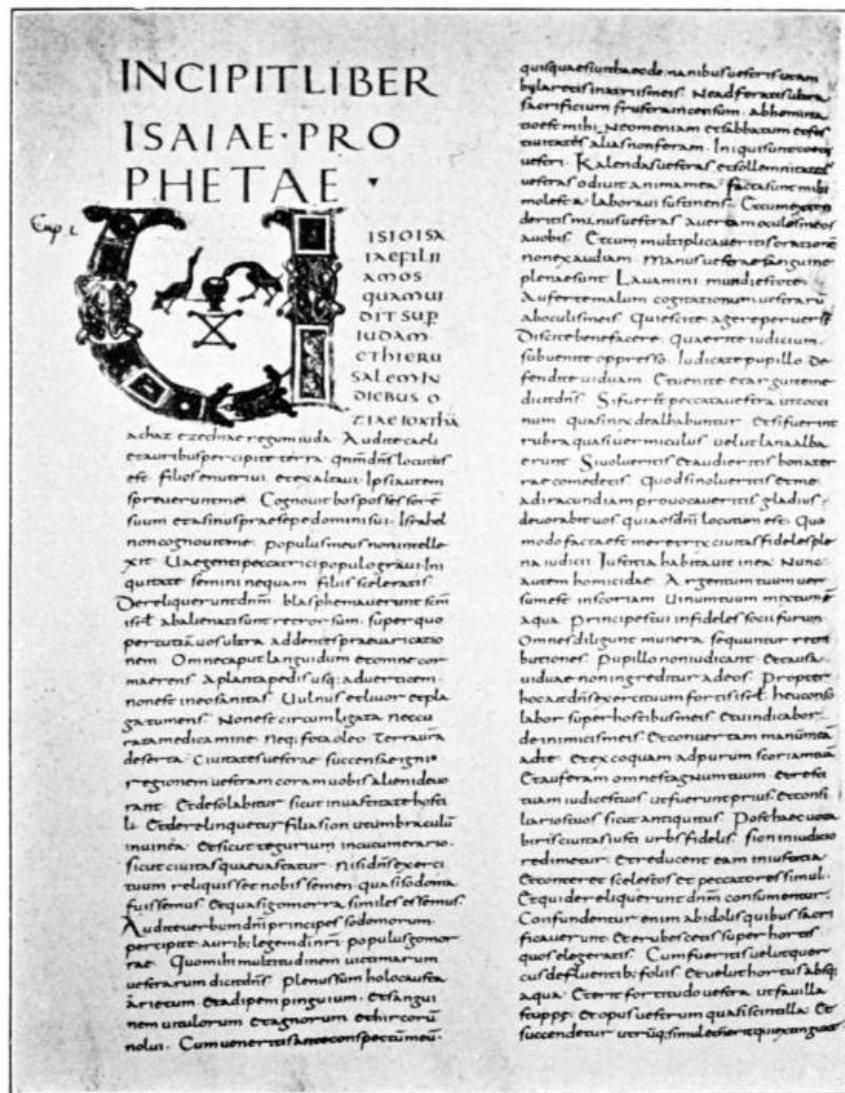 INCIPIT LIBER
ISAIAE · PRO
PHETAE
Cap. I.
UISIO ISA
IAE FILII
AMOS
QUAM UI
DIT SUP
IUDAM
ET HIERU
SALEM IN
DIEBUS O
ZIAE IOATHĀ
achaz ezechiae regum iuda. Audite caeli
et auribus percipite terra. qnm dns locutus
est. filios enutriui et exaltaui. Ipsi autem
spreuerunt me. Cognouit bos possessorē
suum et asinus praesepe domini sui. Israhel
non cognouit me. populus meus non intelle
xit. Uae genti peccatrici populo graui. Ini
quitate semini nequam filiis sceleratis.
Dereliquerunt dnm. blasphemauerunt scm
isrl. abalienati sunt retrorsum. super quo
percutiā uos ultra addentes praeuaricatio
nem. Omne caput languidum et omne cor
maerens. A planta pedis usq; ad uerticem
non est in eo sanitas. Uulnus et liuor et pla
ga tumens. Non est circumligata nec cu
rata medicamine. neq; fota oleo. Terra urā
deserta. Ciuitates uestrae succensae igni
regionem uestram coram uobis alieni deuo
rant. Et desolabitur sicut in uastitate hosti
li. Et derelinquetur filia sion ut umbraculū
in uinea. Et sicut tegurium in cucumerario.
sicut ciuitas quae uastatur. Nisi dns exerci
tuum reliquisset nobis semen. quasi sodoma
fuissemus. Et quasi gomorra similes essemus.
Audite uerbum dni principes sodomorum.
percipite aurib; legem di nri populus gomor
rae. Quo mihi multitudinem uictimarum
uestrarum dicit dns. Plenus sum holocausta
arietum et adipem pinguium. Et sangui
nem uitulorum et agnorum et hircorū
nolui. Cum ueneritis ante conspectum meū.
quis quaesiuit haec de manibus uestris ut am
bularetis in atriis meis. Ne adferatis ultra
sacrificium frustra incensum abhomina
tio est mihi. Neomeniam et sabbatum et fes
tiuitates alias non feram. Iniqui sunt coetus
uestri. Kalendas uestras et sollemnitates
uestras odiuit anima mea. facta sunt mihi
molesta. laboraui sustinens. Et cum exten
deritis manus uestras auertam oculos meos
a uobis. Et cum multiplicaueritis orationē
non exaudiam. Manus uestrae sanguine
plenae sunt. Lauamini mundi estote.
Auferte malum cogitationum uestrarū
ab oculis meis. Quiescite agere peruerse
Discite benefacere. Quaerite iudicium.
subuenite oppresso. Iudicate pupillo. de
fendite uiduam. Et uenite et arguite me
dicit dns. Si fuerint peccata uestra ut cocci
num quasi nix dealbabuntur. Et si fuerint
rubra quasi uermiculus uelut lana alba
erunt. Si uolueritis et audieritis bona ter
rae comedetis. Quod si nolueritis et me
ad iracundiam prouocaueritis gladius
deuorabit uos quia os dni locutum est. Quo
modo facta est meretrix ciuitas fidelis ple
na iudicii. Iustitia habitauit in ea. Nunc
autem homicidae. Argentum tuum uer
sum est in scoriam. Uinum tuum mixtum ē
aqua. Principes tui infideles socii furum.
Omnes diligunt munera. sequuntur retri
butiones. Pupillo non iudicant. Et causa
uiduae non ingreditur ad eos. Propter
hoc ait dns exercituum fortis isrl. heu conso
labor super hostibus meis. Et uindicabor
de inimicis meis. Et conuertam manum meā
ad te. Et excoquam ad purum scoriam tuā
Et auferam omne stagnum tuum. Et resti
tuam iudices tuos ut fuerunt prius. Et consi
liarios tuos sicut antiquitus. Post haec uoca
biris ciuitas iusti urbs fidelis. sion in iudicio
redimetur. Et reducent eam in iustitia
Et conteret scelestos et peccatores simul.
Et qui dereliquerunt dnm consumentur.
Confundentur enim ab idolis quibus sacri
ficauerunt. Et erubescetis super hortis
quos elegeratis. Cum fueritis uelut quer
cus defluentib; foliis. Et uelut hortus absq;
aqua. Et erit fortitudo uestra ut fauilla
stuppe. Et opus uestrum quasi scintilla. Et
succendetur utrūq; simul et non erit qui extinguat